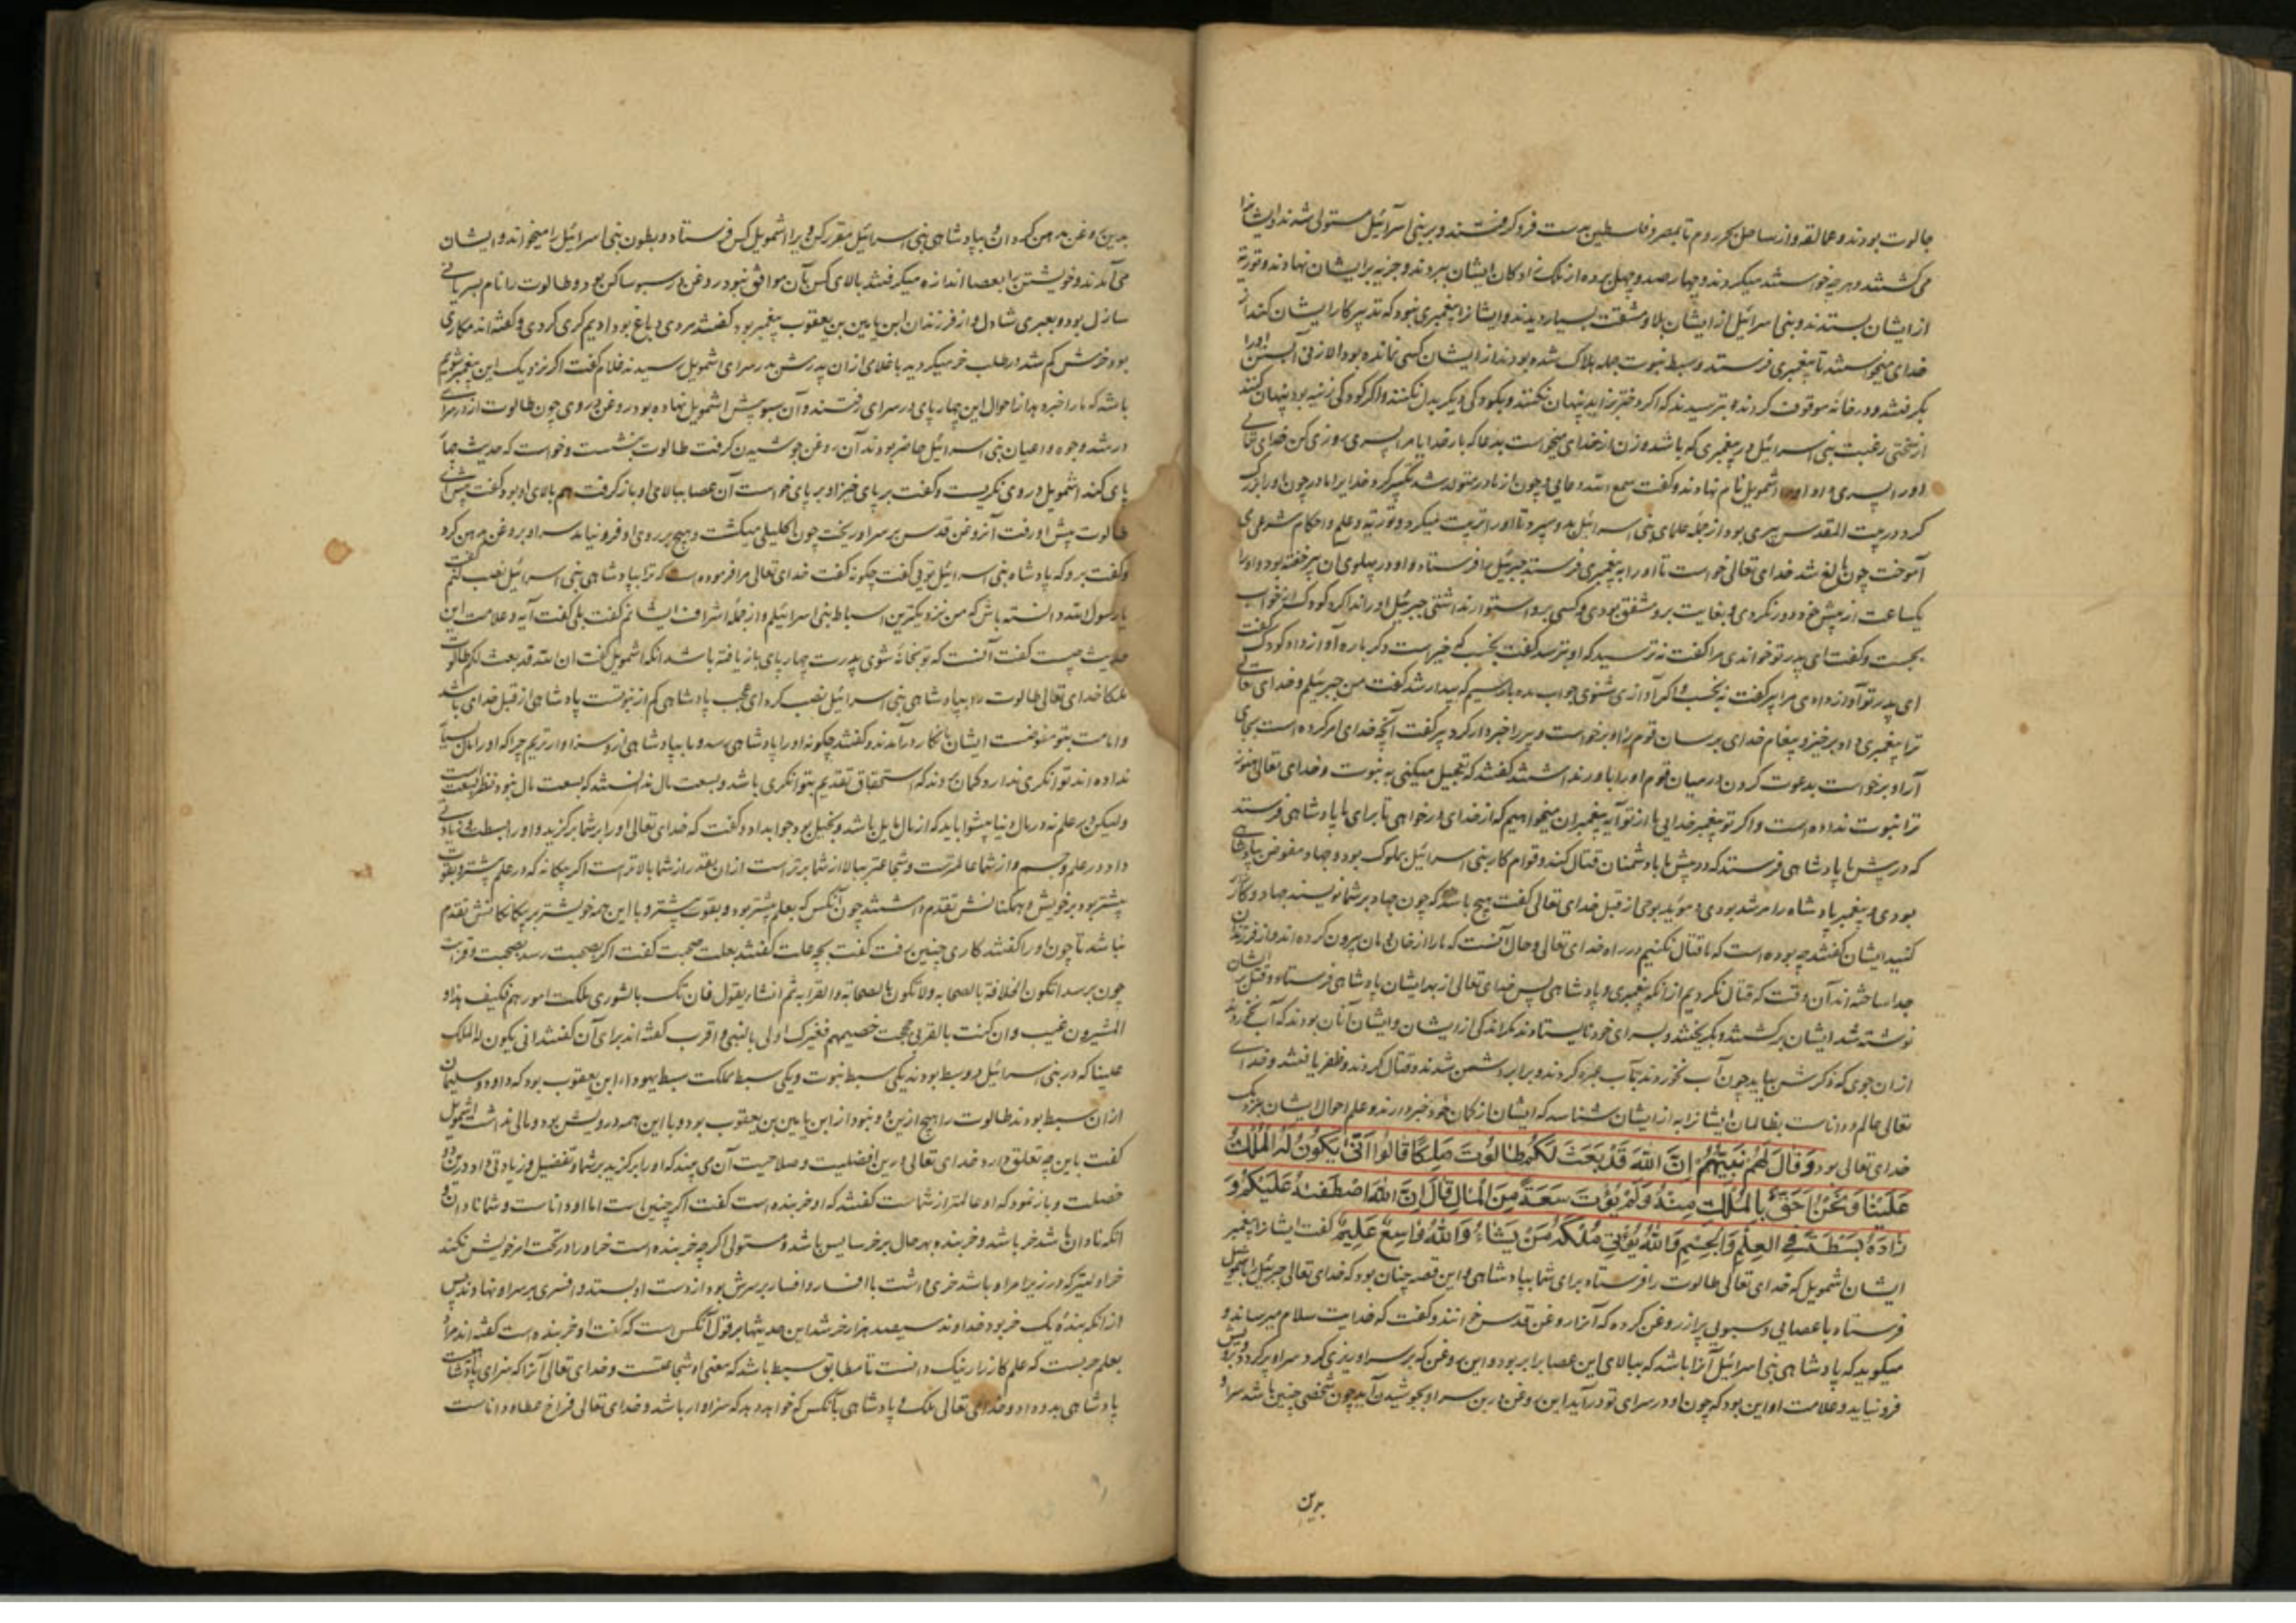 جالوت بودند و عمالقه و از ساحل بحر روم تا بمصر و فلسطین بدست فرو گرفتند و بر بنی اسرآئیل مستولی شدند و ایشانرا
می کشتند و هر چه خواستند میکردند و چهار صد و چهل برده از ملک زادکان ایشان ببردند و جزیه بر ایشان نهادند و توریة
از ایشان بستدند و بنی اسرائیل از ایشان بلا و مشقت بسیار دیدند و ایشانرا پیغمبری نبود که تدبیر کار ایشان کند از
خدای میخواستند تا پیغمبری فرستد و سبط نبوت جمله هلاک شده بودند از ایشان کسی نمانده بود الا زنی آبستن او را
بگرفتند و در خانۀ موقوف کردند و بترسیدند که اگر دختر زاید پنهان نکنند و بکودکی دیگر بدل نکنند و اگر کودکی نرینه بود پنهان کنند
از سختی رغبت بنی اسرائیل در پیغمبری که باشد و زن از خدای میخواست بدعا که بار خدایا مرا پسری روزی کن خدای تعالی
او را پسری داد او را اشمویل نام نهادند و گفت سمع الله دعایی و چون از مادر متولد شد تکبیر کرد خدایرا مادر چون او را بزرگ
کرد در بیت المقدس پیری بود از جمله علمای بنی اسرائیل بدو سپرد تا او را تربیت میکرد و توریة و علم و احکام شرعی
آموخت چون بالغ شد خدای تعالی خواست تا او را به پیغمبری فرستد جبرئیل را فرستاد و او در پهلوی آن پیر خفته بود و او را
یکساعت از پیش خود دور نکردی و بغایت برو مشفق بودی و کسی برو استوار نداشتی جبرئیل او را ندا کرد کودک از خواب
بجست و گفت ای پدر تو خواندی مرا گفت نه ترسید که او بترسد گفت بخسب که خیرست دگر باره آواز داد کودک گفت
ای پدر تو آواز دادی مرا پیر گفت نه بخسب و اگر آوازی شنوی جواب مده باز سیم که بیدار شد گفت من جبرئیلم و خدای تعالی
ترا پیغمبری داد برخیز و پیغام خدای برسان قوم را او برخواست و پیر را خبردار کرد پیر گفت آنچه خدای امر کرده است بجای
آر او برخواست بدعوت کردن در میان قوم او را باور نداشتند گفتند که تعجیل میکنی به نبوت و خدای تعالی هنوز
ترا نبوت نداده است و اگر تو پیغمبر خدایی ما از تو آیه پیغمبران میخواهیم که از خدای درخواهی تا برای ما پادشاهی فرستد
که در پیش ما پادشاهی فرستد که در پیش ما با دشمنان قتال کند و قوام کار بنی اسرائیل بملوک بود و جهاد مفوض بپادشاه
بودی و پیغمبر پادشاه را مرشد بودی و مؤید بوحی از قبل خدای تعالی گفت هیچ باشد که چون جهاد بر شما نویسند جهاد و کارزار
کنید ایشان گفتند چه بوده است که ما قتال نکنیم در راه خدای تعالی و حال آنست که ما را از خان و مان بیرون کرده اند و از فرزندان
جدا ساخته اند آن وقت که قتال نکردیم از آنکه پیغمبری و پادشاهی پس خدای تعالی از بهر ایشان پادشاهی فرستاد و قتل بر ایشان
نوشته شد ایشان برگشتند و بگریختند و بسرای خود نایستادند مگر اندکی از ایشان و ایشان آنان بودند که آب نخوردند
از ان جوی که ذکرش بیاید چون آب نخوردند بآب عبره کردند و برابر دشمن شدند و قتال کردند و ظفر یافتند و خدای
تعالی عالم و داناست بظالمان ایشانرا به از ایشان شناسد که ایشان از کمان خود خبر دارند و علم احوال ایشان بنزدیک
خدای تعالی بود وَقَالَ لَهُمْ نَبِيُّهُمْ اِنَّ اللّٰهَ قَدْ بَعَثَ لَكُمْ طَالُوتَ مَلِكًا قَالُوا اَنّٰى يَكُونُ لَهُ الْمُلْكُ
عَلَيْنَا وَنَحْنُ اَحَقُّ بِالْمُلْكِ مِنْهُ وَلَمْ يُؤْتَ سَعَةً مِنَ الْمَالِ قَالَ اِنَّ اللّٰهَ اصْطَفٰهُ عَلَيْكُمْ وَ
زَادَهُ بَسْطَةً فِى الْعِلْمِ وَالْجِسْمِ وَاللّٰهُ يُؤْتِى مُلْكَهُ مَنْ يَشَاءُ وَاللّٰهُ وَاسِعٌ عَلِيمٌ گفت ایشانرا پیغمبر
ایشان اشمویل که خدای تعالی طالوت را فرستاد برای شما بپادشاهی و این قصه چنان بود که خدای تعالی جبرئیل را باشمویل
فرستاد با عصایی و سبویی پر از روغن کرده که آنرا روغن قدس خوانند و گفت که خدایت سلام میرساند و
میگوید که پادشاهی بنی اسرائیل آنرا باشد که ببالای این عصا برابر بود و این روغن که بر سر او ریزی گرد سر او برگردد و برویش
فرو نیاید و علامت او این بود که چون او در سرای تو در آید این روغن درین سبو بجوشیدن آید چون شخصی چنین باشد سر او
بدین
بدین روغن مدهن کرد ان و بپادشاهی بنی اسرائیل مقرر کن ویرا اشمویل کس فرستاد و بطون بنی اسرائیل را میخواندند و ایشان
می آمدند و خویشتن را بعصا اندازه میگرفتند بالای کس بآن موافق نبود و روغن در سبو ساکن بود و طالوت را نام بسریانی
سازل بود و بعبری شادل و از فرزندان ابن یامین بن یعقوب پیغمبر بود گفتند مردی دباغ بود ادیم گری کردی و گفته اند مکاری
بود خرش گم شد در طلب خر میگردید با غلامی از ان پدرش بدر سرای اشمویل رسیدند غلام گفت اگر نزدیک این پیغمبر شویم
باشد که ما را خبر دهد از احوال این چهارپای در سرای رفتند و آن سبو پیش اشمویل نهاده بود روغن در وی چون طالوت از در سرای
در شد وجوه و اعیان بنی اسرائیل حاضر بودند آن روغن جوشیدن گرفت طالوت بنشست و خواست که حدیث چهار
پای کند اشمویل در وی نگریست و گفت بر پای خیز او بر پای خواست آن عصا ببالای او باز گرفت هم بالای او بود گفت پیش آی
طالوت پیش او رفت آنروغن قدس بر سر او ریخت چون اکلیلی میگشت و هیچ بر روی او فرو نیامد سر او بروغن مدهن کرد
و گفت برو که پادشاه بنی اسرائیل تویی گفت چگونه گفت خدای تعالی مرا فرموده است که ترا بپادشاهی بنی اسرائیل نصب کنم گفت
یا رسول الله دانسته باش که من نزدیکترین اسباط بنی اسرائیلم و از جمله اشراف ایشان نم گفت بلی گفت آیه و علامت این
حدیث چیست گفت آنست که تو بخانه شوی پدرت چهارپای باز یافته باشد آنگه اشمویل گفت ان الله قد بعث لکم طالوت
ملکا خدای تعالی طالوت را بپادشاهی بنی اسرائیل نصب کرد ای عجب پادشاهی کم از نبوتست پادشاهی از قبل خدای باشد
و امامت بتو مفوضست ایشان بانکار درآمدند و گفتند چگونه او را پادشاهی رسد و ما بپادشاهی از و سزاوارتریم چرا که او را مال بسیار
نداده اند توانگری ندارد گمان بردند که استحقاق تقدیم بتوانگری باشد و بسعت مال ندانستند که بسعت مال نبود نظر بسعت
داد در علم و جسم و از شما عالمترست و شجاعتر ببالا از شما برترست از ان بقدر از شما بالاترست اگر بیکانه که در علم بیشتر و بقوت
بیشتر بود بر خویش و همکنانش تقدم داشتند چون آنکس که بعلم بیشتر بود و بقوت بیشتر و با این همه خویشتر بر بیکانکانش تقدم
نباشد تا چون او را گفتند کاری چنین رفت گفت بچه علت گفتند بعلت صحبت گفت اگر بصحبت رسد بصحبت و قرابت
چون نرسد اتکون الخلافة بالصحابه ولا تکون بالصحابة والقرابه ثم انشا یقول فان تک بالشوری ملکت امورهم فکیف بذا و
المشیرون غیب و ان کنت بالقربی حججت خصیمهم فغیرک اولی بالنبی و اقرب گفته اند برای آن گفتند انی یکون له الملک
علینا که در بنی اسرائیل دو سبط بودند یکی سبط نبوت و یکی سبط مملکت سبط یهودا ابن یعقوب بود که داود و سلیمان
ازان سبط بودند طالوت را هیچ ازین دو نبود از ابن یامین بن یعقوب بود و با این همه درویش بود و مالی نداشت اشمویل
گفت باین چه تعلق دارد خدای تعالی درین افضلیت و صلاحیت آن می بیند که او را برگزید بر شما و تفضیل و زیادتی داد درین دو
خصلت و باز نمود که او عالمتر از شماست گفتند که او خربنده است گفت اگر چنین است اما او داناست و شما نادان و
انکه نادان باشد خر باشد و خربنده بهر حال بر خر سایس باشد و مستولی اگر چه خربنده است خر او را در تحت امر خویش نکند
از انکه بنده یک خر بود خداوند سیصد هزار خر شد این حدیثها بر قول آنکس است که گفت او خربنده است گفته اند مراد
بعلم حربست که علم کارزار نیک دانست تا مطابق بسط باشد که معنی او شجاعتست و خدای تعالی آنرا که سزای پادشاهیست
پادشاهی بدو داد و خدای تعالی ملک و پادشاهی بآنکس که خواهد دهد که سزاوار باشد و خدای تعالی فراخ عطا و داناست